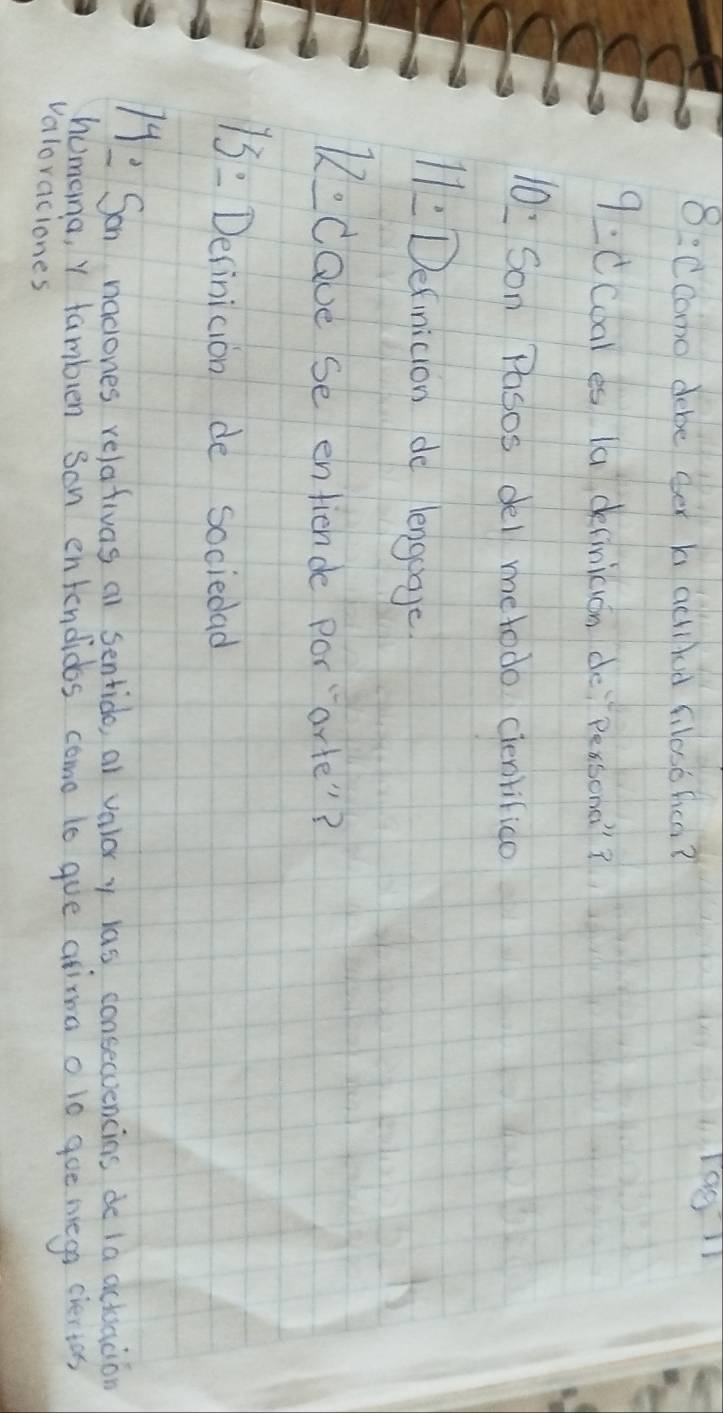 Pag 11
8.- ¿Como debe ser la actitud filosófica?
9.- ¿Cual es la definición de "Persona"?
10.- Son Pasos del metodo cientifico
11.- Definición de lenguaje.
12.- ¿Que se entiende por "arte"?
13.- Definición de sociedad
14.- Son naciones relativas al sentido, al valor y las consecuencias de la actuación
humana, y tambien son entendidos como lo que afirma o lo que niega ciertas
valoraciones